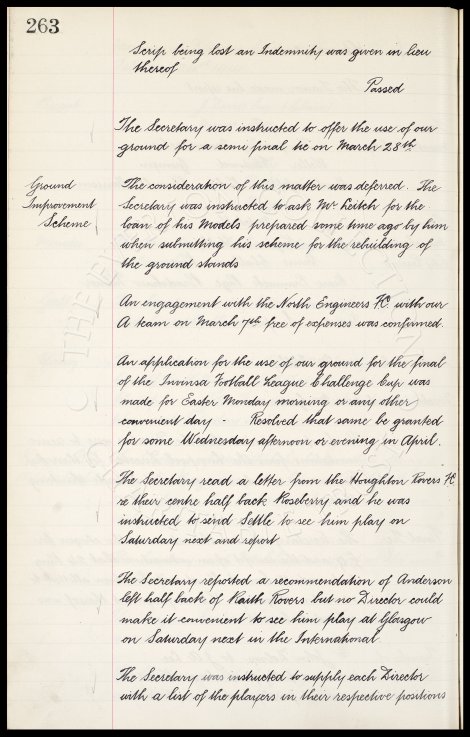 263
Scrip being lost an Indemnity was given in lieu
thereof
Passed
The Secretary was instructed to offer the use of our
ground for a semi final tie on March 28th.
Ground
Improvement
Scheme
The consideration of this matter was deferred. The
Secretary was instructed to ask Mr Leitch for the
loan of his Models prepared some time ago by him
when submitting his scheme for the rebuilding of
the ground stands
An engagement with the North Engineers FC. with our
A team on March 7th free of expenses was confirmed.
An application for the use of our ground for the final
of the Invinsa Football League Challenge Cup was
made for Easter Monday morning or any other
convenient day - Resolved that same be granted
for some Wednesday afternoon or evening in April.
The Secretary read a letter from the Houghton Rovers FC
re their centre half back Roseberry and he was
instructed to send Settle to see him play on
Saturday next and report
The Secretary reported a recommendation of Anderson
left half back of Raith Rovers but no Director could
make it convenient to see him play at Glasgow
on Saturday next in the International.
The Secretary was instructed to supply each Director
with a list of the players in their respective positions